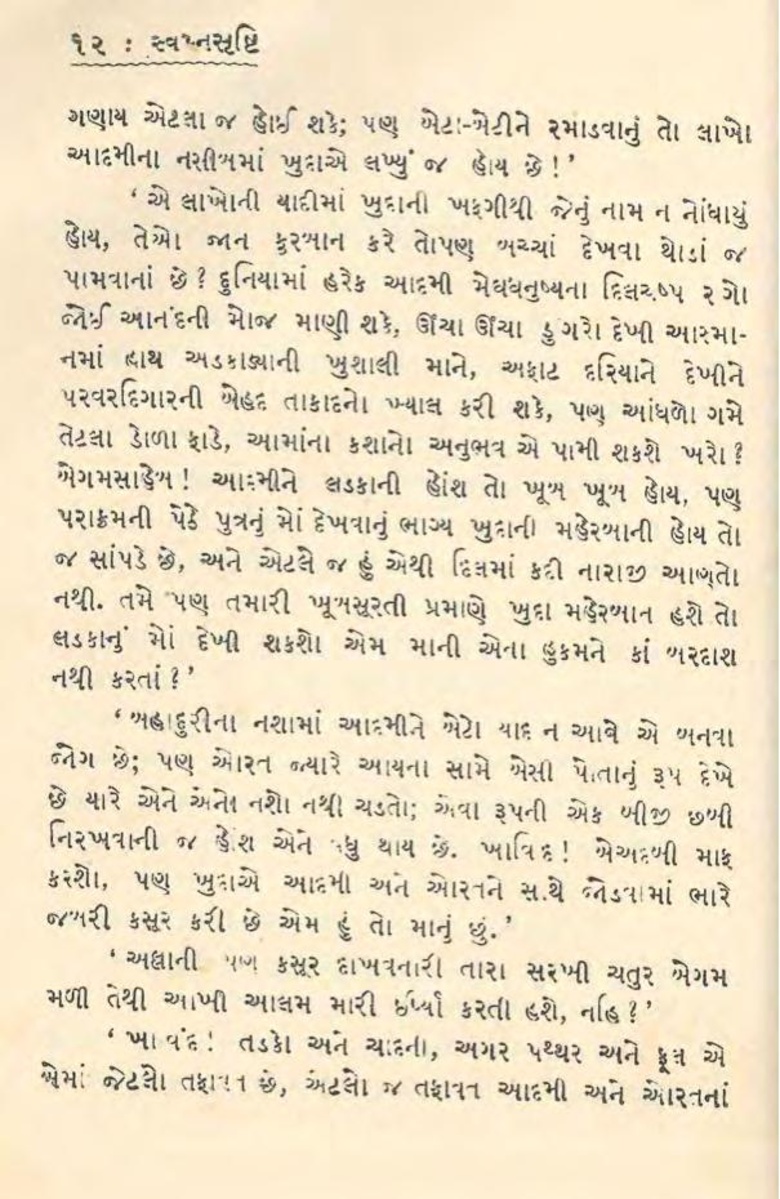 ૧૨ : સ્વપ્નસૃષ્ટિ
ગણાય એટલા જ હોઈ શકે; પણ બેટા-બેટીને રમાડવાનું તો લાખો
આદમીના નસીબમાં ખુદાએ લખ્યું જ હોય છે!’
‘એ લાખોની યાદીમાં ખુદાની ખફગીથી જેનું નામ ન નોંધાયું
હોય, તેઓ જાન કુરબાન કરે તોપણ બચ્ચાં દેખવા થોડાં જ
પામવાનાં છે? દુનિયામાં હરેક આદમી મેઘધનુષ્યના દિલચસ્પ રંગો
જોઈ આનંદની મોજ માણી શકે, ઊંચા ઊંચા ડુંગરો દેખી આસમા-
નમાં હાથ અડકાડ્યાની ખુશાલી માને, અફાટ દરિયાને દેખીને
પરવરદિગારની બેહદ તાકાદનો ખ્યાલ કરી શકે, પણ આંધળો ગમે
તેટલા ડોળા ફાડે, આમાંના કશાનો અનુભવ એ પામી શકશે ખરો?
બેગમસાહેબ! આદમીને લડકાની હોંશ તો ખૂબ ખૂબ હોય, પણ
પરાક્રમની પેઠે પુત્રનું મોં દેખવાનું ભાગ્ય ખુદાની મહેરબાની હોય તો
જ સાંપડે છે, અને એટલે જ હું એથી દિલમાં કદી નારાજી આણતો
નથી. તમે પણ તમારી ખૂબસૂરતી પ્રમાણે ખુદા મહેરબાન હશે તો
લડકાનું મોં દેખી શકશો એમ માની એના હુકમને કાં બરદાશ
નથી કરતાં?’
‘બહાદુરીના નશામાં આદમીને બેટો યાદ ન આવે એ બનવા
જોગ છે; પણ ઓરત જ્યારે આયના સામે બેસી પોતાનું રૂપ દેખે
છે ત્યારે એને એનો નશો નથી ચડતો; એવા રૂપની એક બીજી છબી
નિરખવાની જ હોંશ એને વધુ થાય છે. ખાવિંદ! બેઅદબી માફ
કરશો, પણ ખુદાએ આદમી અને ઓરતને સાથે જોડવામાં ભારે
જબરી કસૂર કરી છે એમ હું તો માનું છું.’
‘અલ્લાની પણ કસૂર દાખવનારી તારા સરખી ચતુર બેગમ
મળી તેથી આખી આલમ મારી ઈર્ષ્યા કરતી હશે, નહિ?’
‘ખાવંદ! તડકો અને ચાંદની, અગર પથ્થર અને ફૂલ એ
બેમાં જેટલો તફાવત છે, એટલો જ તફાવત આદમી અને ઓરતનાં